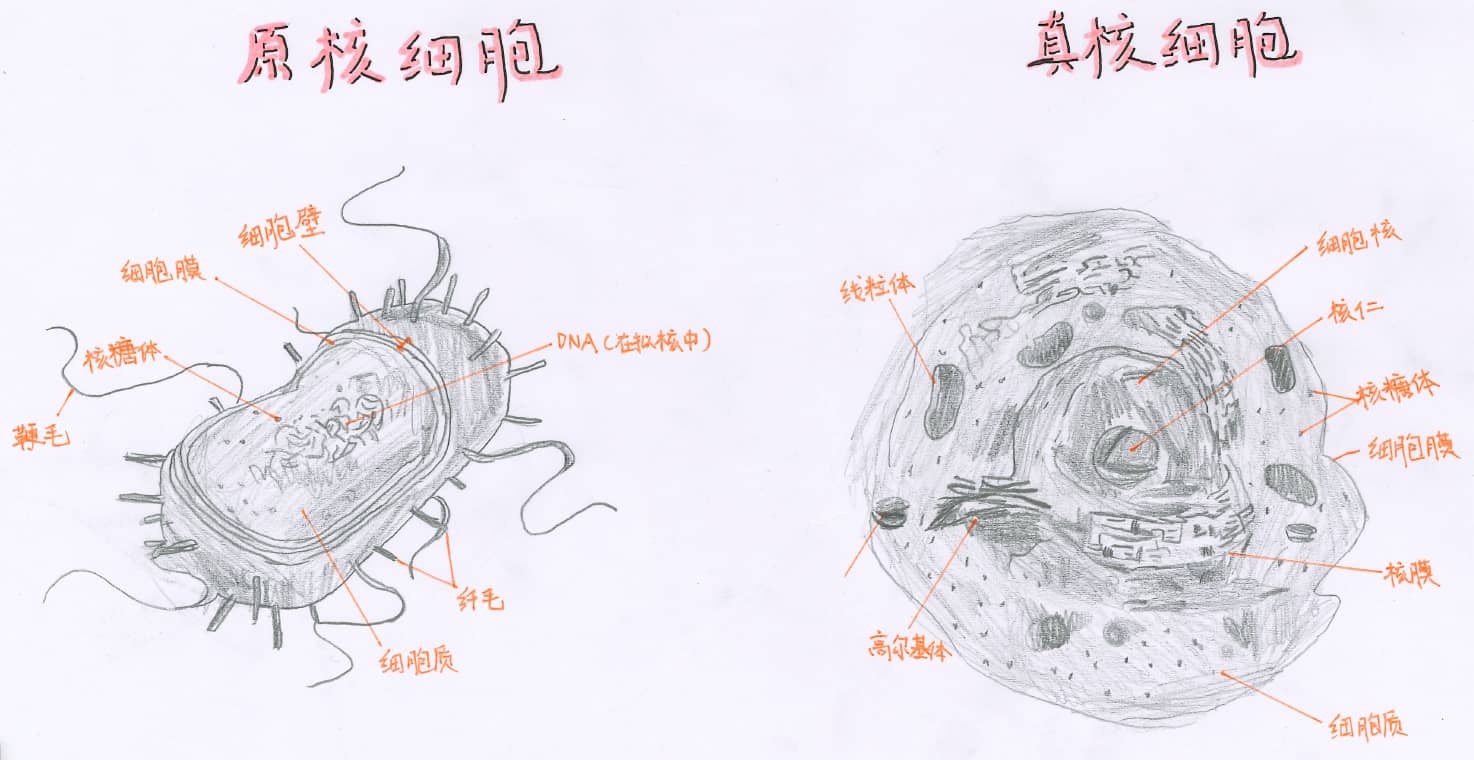 原核细胞
细胞壁
细胞膜
核糖体
DNA(在拟核中)
鞭毛
纤毛
细胞质
真核细胞
细胞核
线粒体
核仁
核糖体
细胞膜
核膜
高尔基体
细胞质